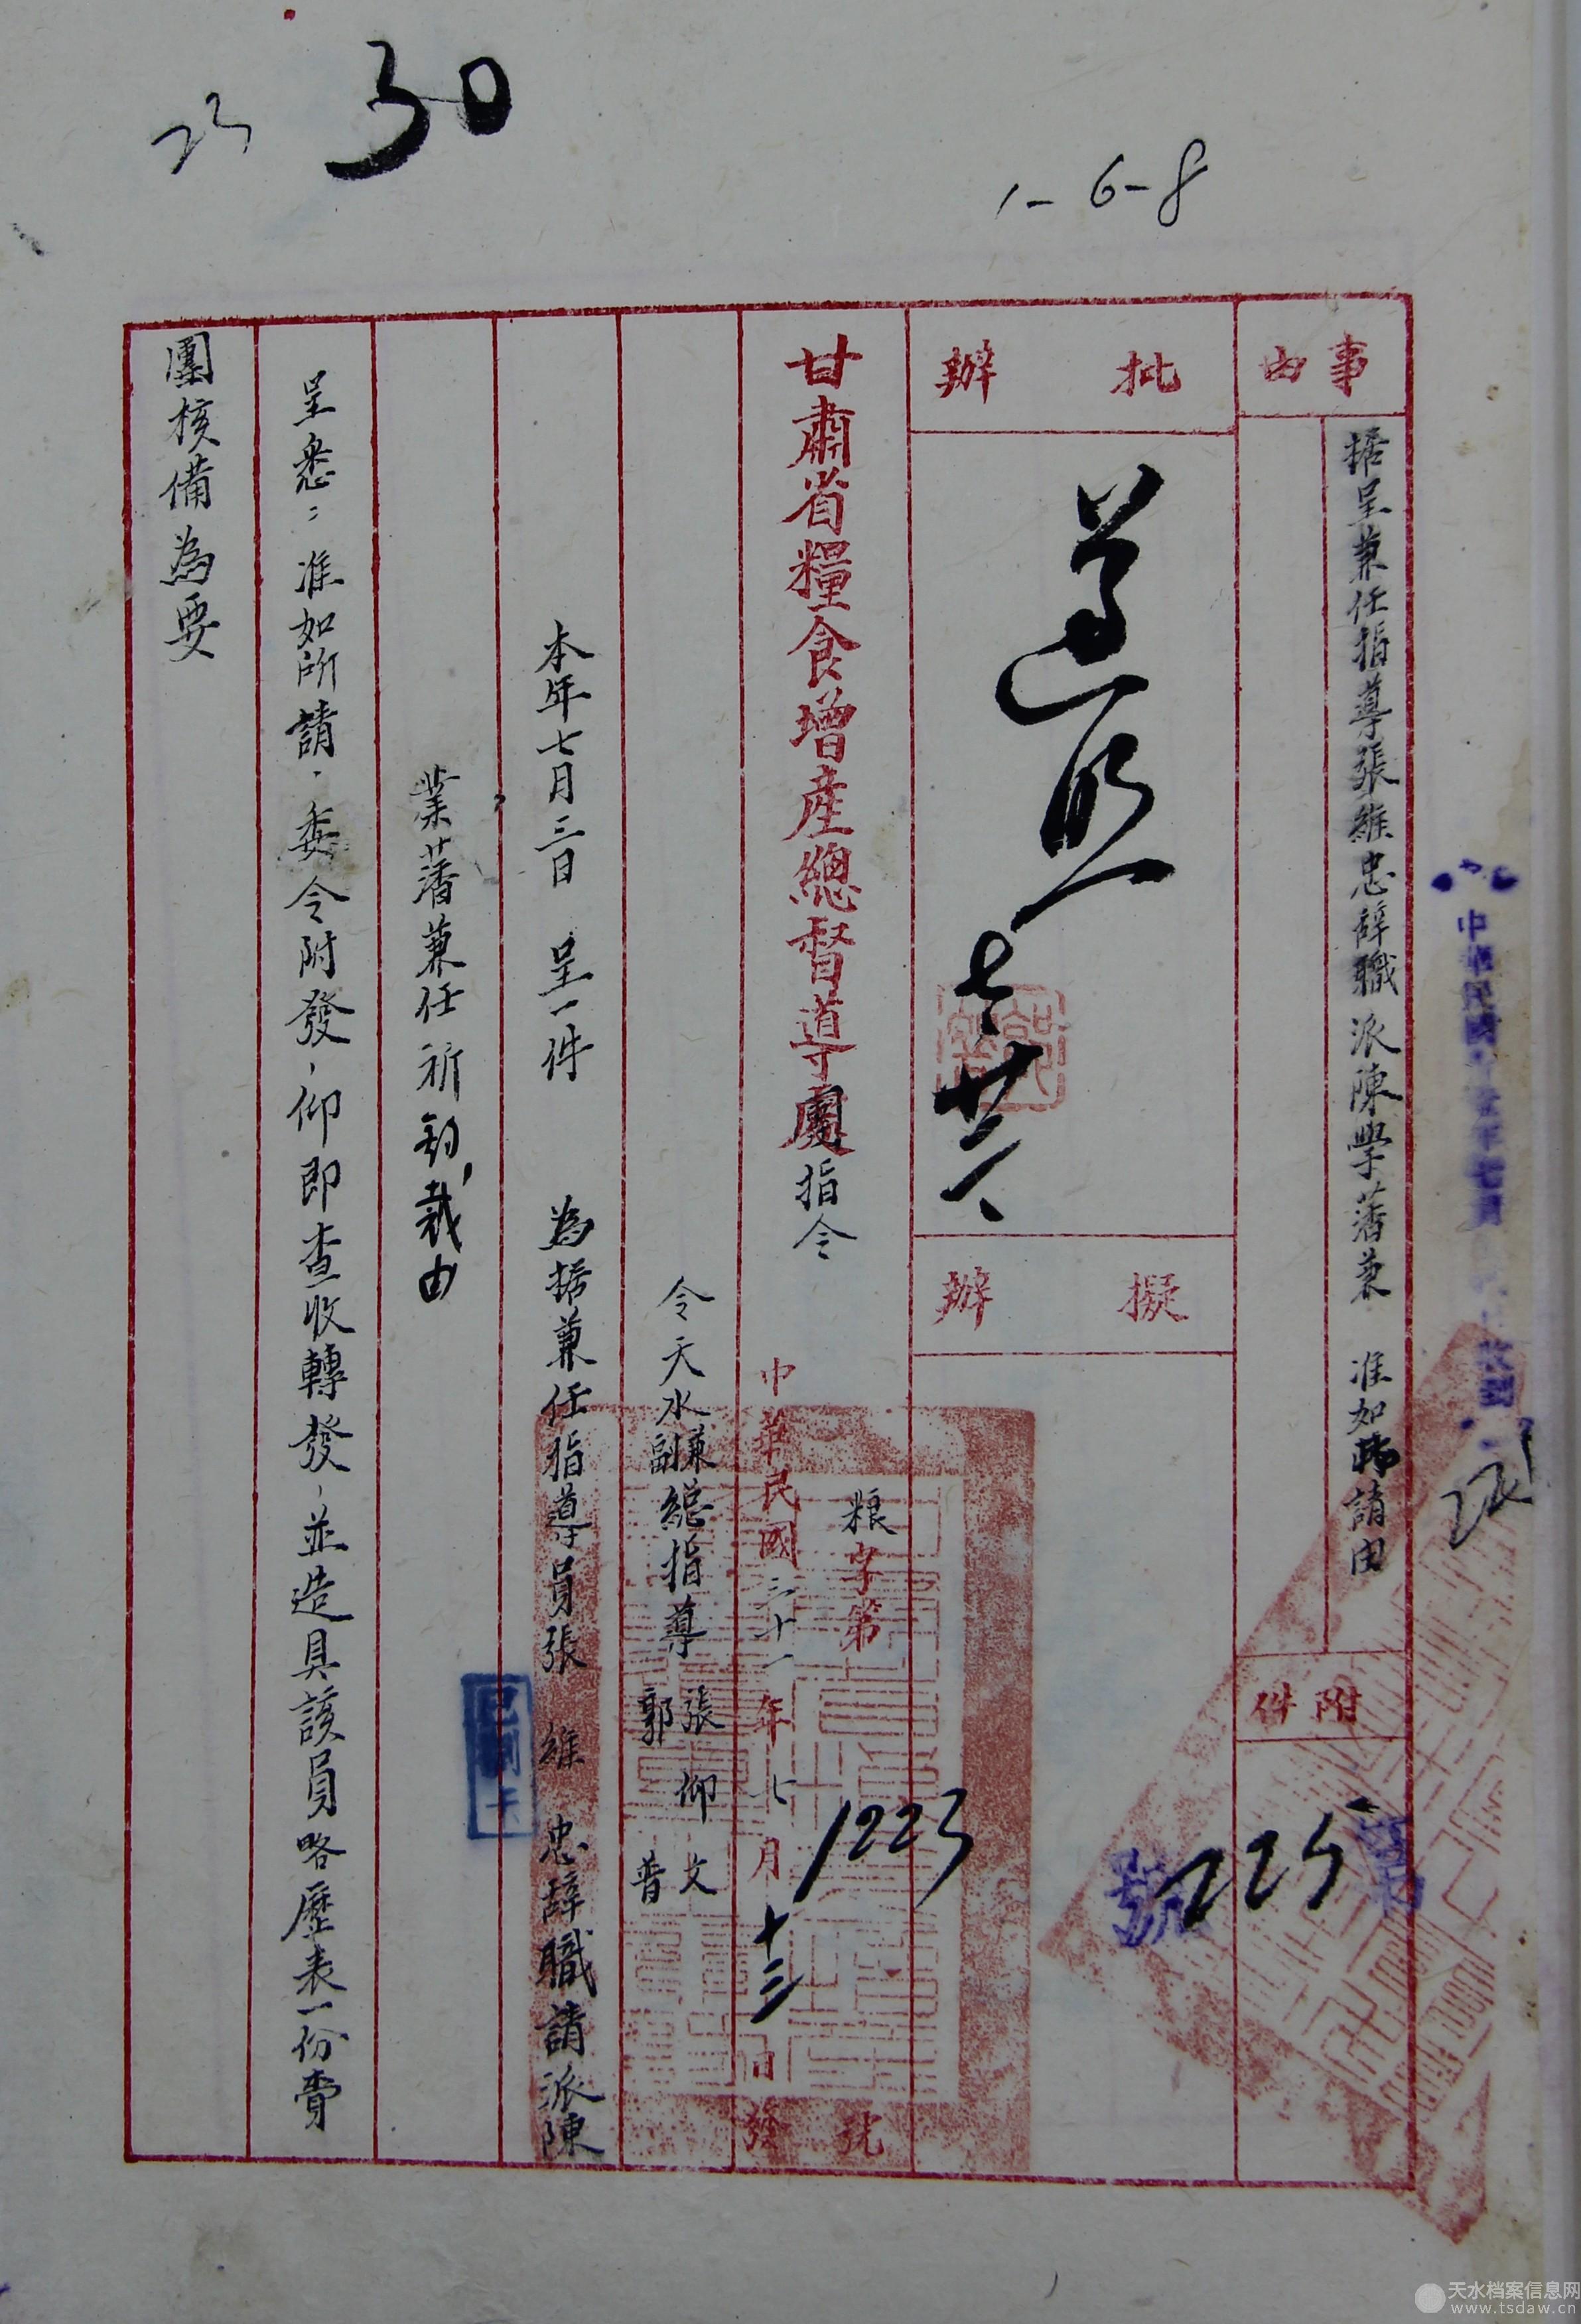 23
30
1-6-8
事由
据呈兼任指導張維忠辭職派陳學蕃兼 准如所請由
附件
225
號
批辦
遵照 七 廿二
擬辦
甘肅省糧食增產總督導團指令
粮字第1223號
中華民國三十一年七月十三日發
令天水兼副總指導 張仰文 郭普
本年七月三日 呈一件 為据兼任指導員張維忠辭職請派陳
業蕃兼任祈鈞裁由
呈悉：准如所請，委令附發，仰即查收轉發，並造具該員略歷表一份賫
團核備為要
天水档案信息网
www.tsdaw.cn